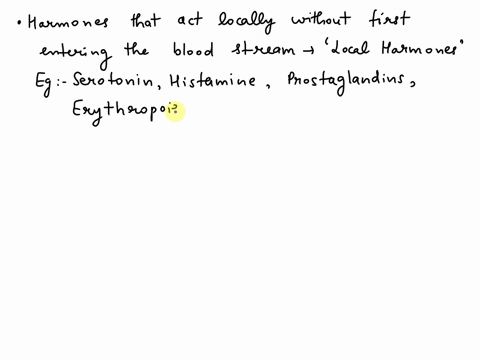 • Harmones that act locally without first
entering the blood stream → 'Local Harmones'
Eg:- Serotonin, Histamine, Prostaglandins,
Erythropoi